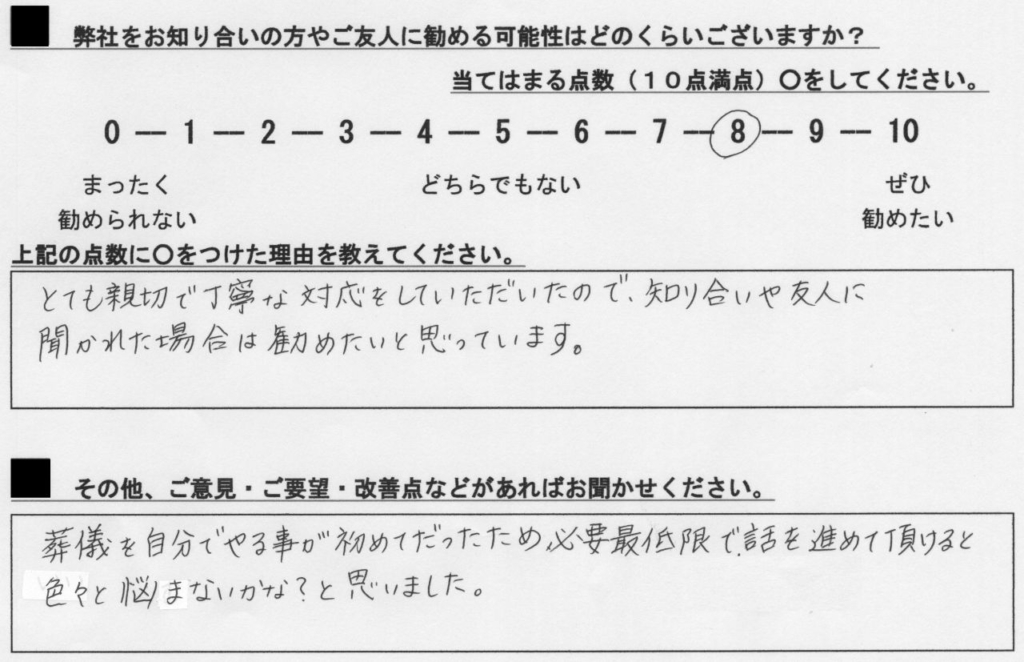 弊社をお知り合いの方やご友人に勧める可能性はどのくらいございますか?
当てはまる点数(10点満点)〇をしてください。
0 ― 1 ― 2 ― 3 ― 4 ― 5 ― 6 ― 7 ― 8 ― 9 ― 10
まったく どちらでもない ぜひ
勧められない 勧めたい
上記の点数に〇をつけた理由を教えてください。
とても親切で丁寧な対応をしていただいたので、知り合いや友人に
聞かれた場合は勧めたいと思っています。
その他、ご意見・ご要望・改善点などがあればお聞かせください。
葬儀を自分でやる事が初めてだったため、必要最低限で、話を進めて頂けると
色々と悩まないかな?と思いました。